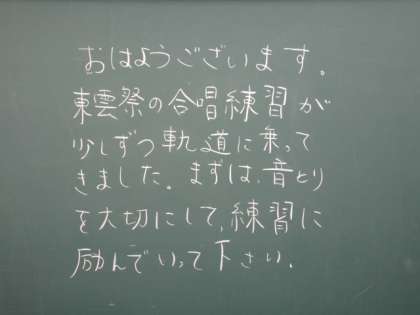 おはようございます。
東雲祭の合唱練習が
少しずつ軌道に乗って
きました。まずは、音とり
を大切にして、練習に
励んでいって下さい。